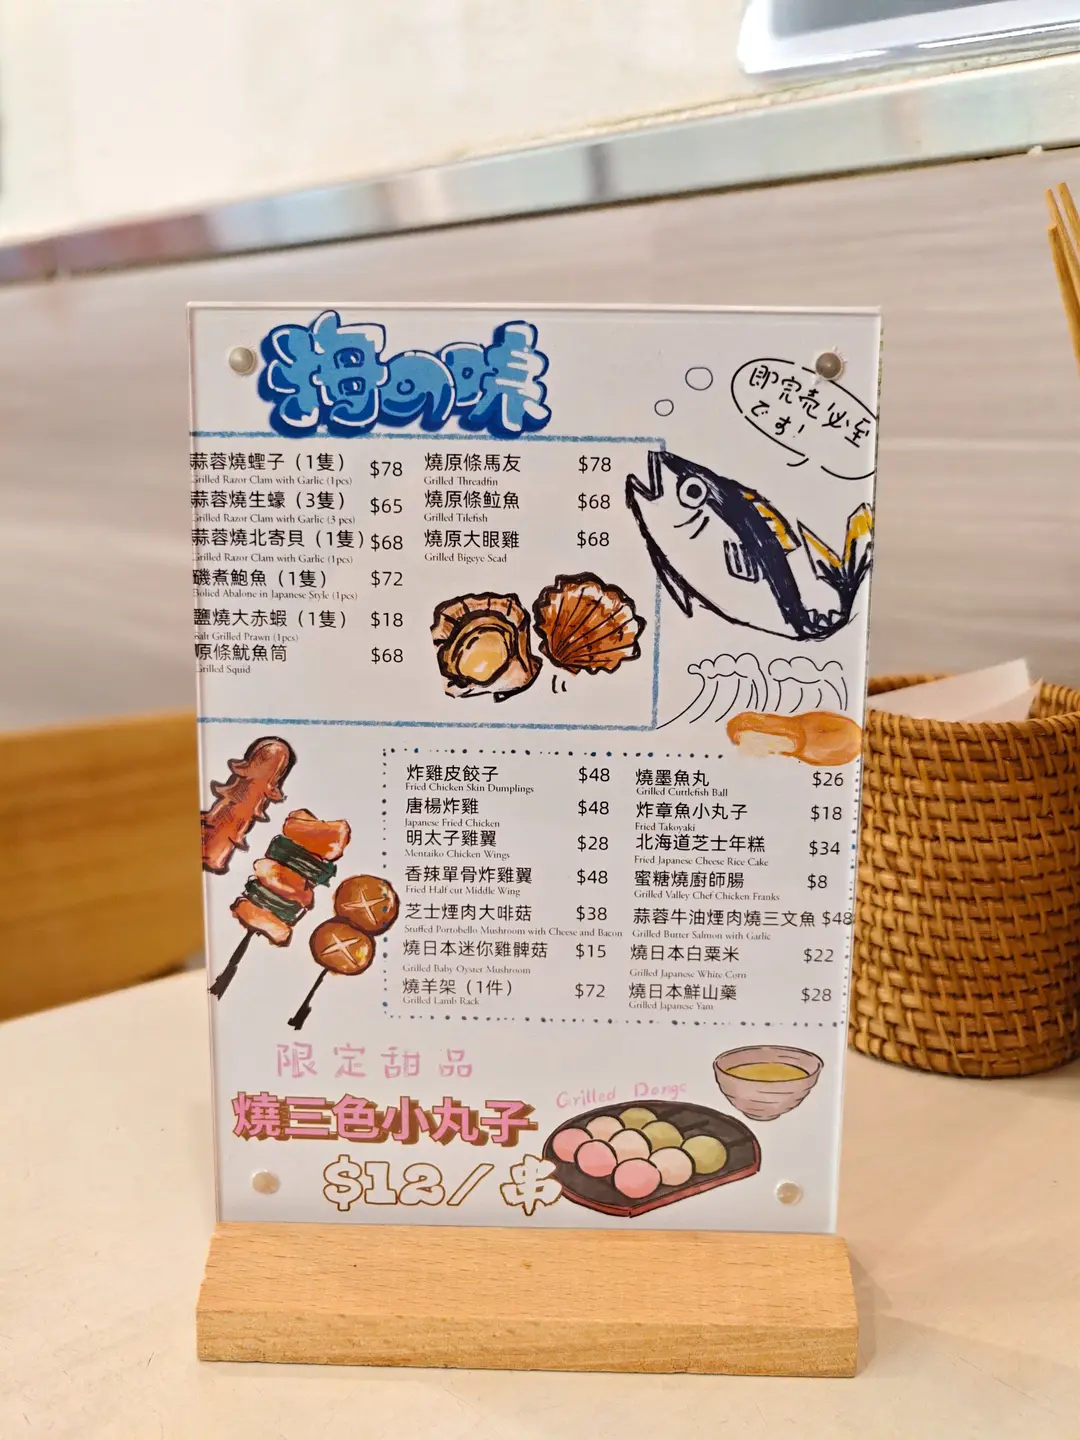 海の燒
即完売必至
です!
蒜蓉燒蟶子（1隻） $78
Grilled Razor Clam with Garlic (1pcs)
蒜蓉燒生蠔（3隻） $65
Grilled Razor Clam with Garlic (3 pcs)
蒜蓉燒北寄貝（1隻） $68
Grilled Razor Clam with Garlic (1pcs)
磯煮鮑魚（1隻） $72
Bolied Abalone in Japanese Style (1pcs)
鹽燒大赤蝦（1隻） $18
Salt Grilled Prawn (1pcs)
原條魷魚筒 $68
Grilled Squid
燒原條馬友 $78
Grilled Threadfin
燒原條鮫魚 $68
Grilled Tilefish
燒原大眼雞 $68
Grilled Bigeye Scad
炸雞皮餃子 $48
Fried Chicken Skin Dumplings
唐楊炸雞 $48
Japanese Fried Chicken
明太子雞翼 $28
Mentaiko Chicken Wings
香辣單骨炸雞翼 $48
Fried Half cut Middle Wing
芝士煙肉大啡菇 $38
Stuffed Portobello Mushroom with Cheese and Bacon
燒日本迷你雞髀菇 $15
Grilled Baby Oyster Mushroom
燒羊架（1件） $72
Grilled Lamb Rack
燒墨魚丸 $26
Grilled Curttlefish Ball
炸章魚小丸子 $18
Fried Takoyaki
北海道芝士年糕 $34
Fried Japanese Cheese Rice Cake
蜜糖燒廚師腸 $8
Grilled Valley Chef Chicken Franks
蒜蓉牛油煙肉燒三文魚 $48
Grilled Butter Salmon with Garlic
燒日本白粟米 $22
Grilled Japanese White Corn
燒日本鮮山藥 $28
Grilled Japanese Yam
限定甜品
燒三色小丸子
Grilled Dongs
$12/串